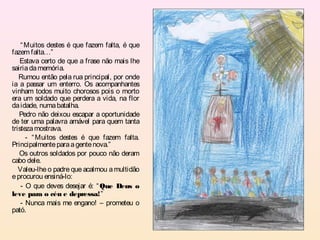 “Muitos destes é que fazem falta, é que
fazem falta…”
Estava certo de que a frase não mais lhe
sairia da memória.
Rumou então pela rua principal, por onde
ia a passar um enterro. Os acompanhantes
vinham todos muito chorosos pois o morto
era um soldado que perdera a vida, na flor
da idade, numa batalha.
Pedro não deixou escapar a oportunidade
de ter uma palavra amável para quem tanta
tristeza mostrava.
- “Muitos destes é que fazem falta.
Principalmente para a gente nova.”
Os outros soldados por pouco não deram
cabo dele.
Valeu-lhe o padre que acalmou a multidão
e procurou ensiná-lo:
- O que deves desejar é: “Que Deus o
leve para o céu e depressa!”
- Nunca mais me engano! – prometeu o
pató.